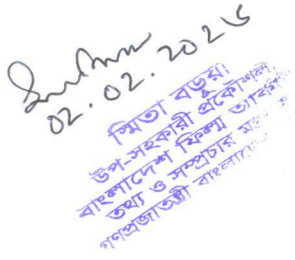 02.02.2026
স্মিতা বড়ুয়া
উপ-সহকারী প্রকৌশলী
বাংলাদেশ ফিল্ম
তথ্য ও সম্প্রচার
গণপ্রজাতন্ত্রী